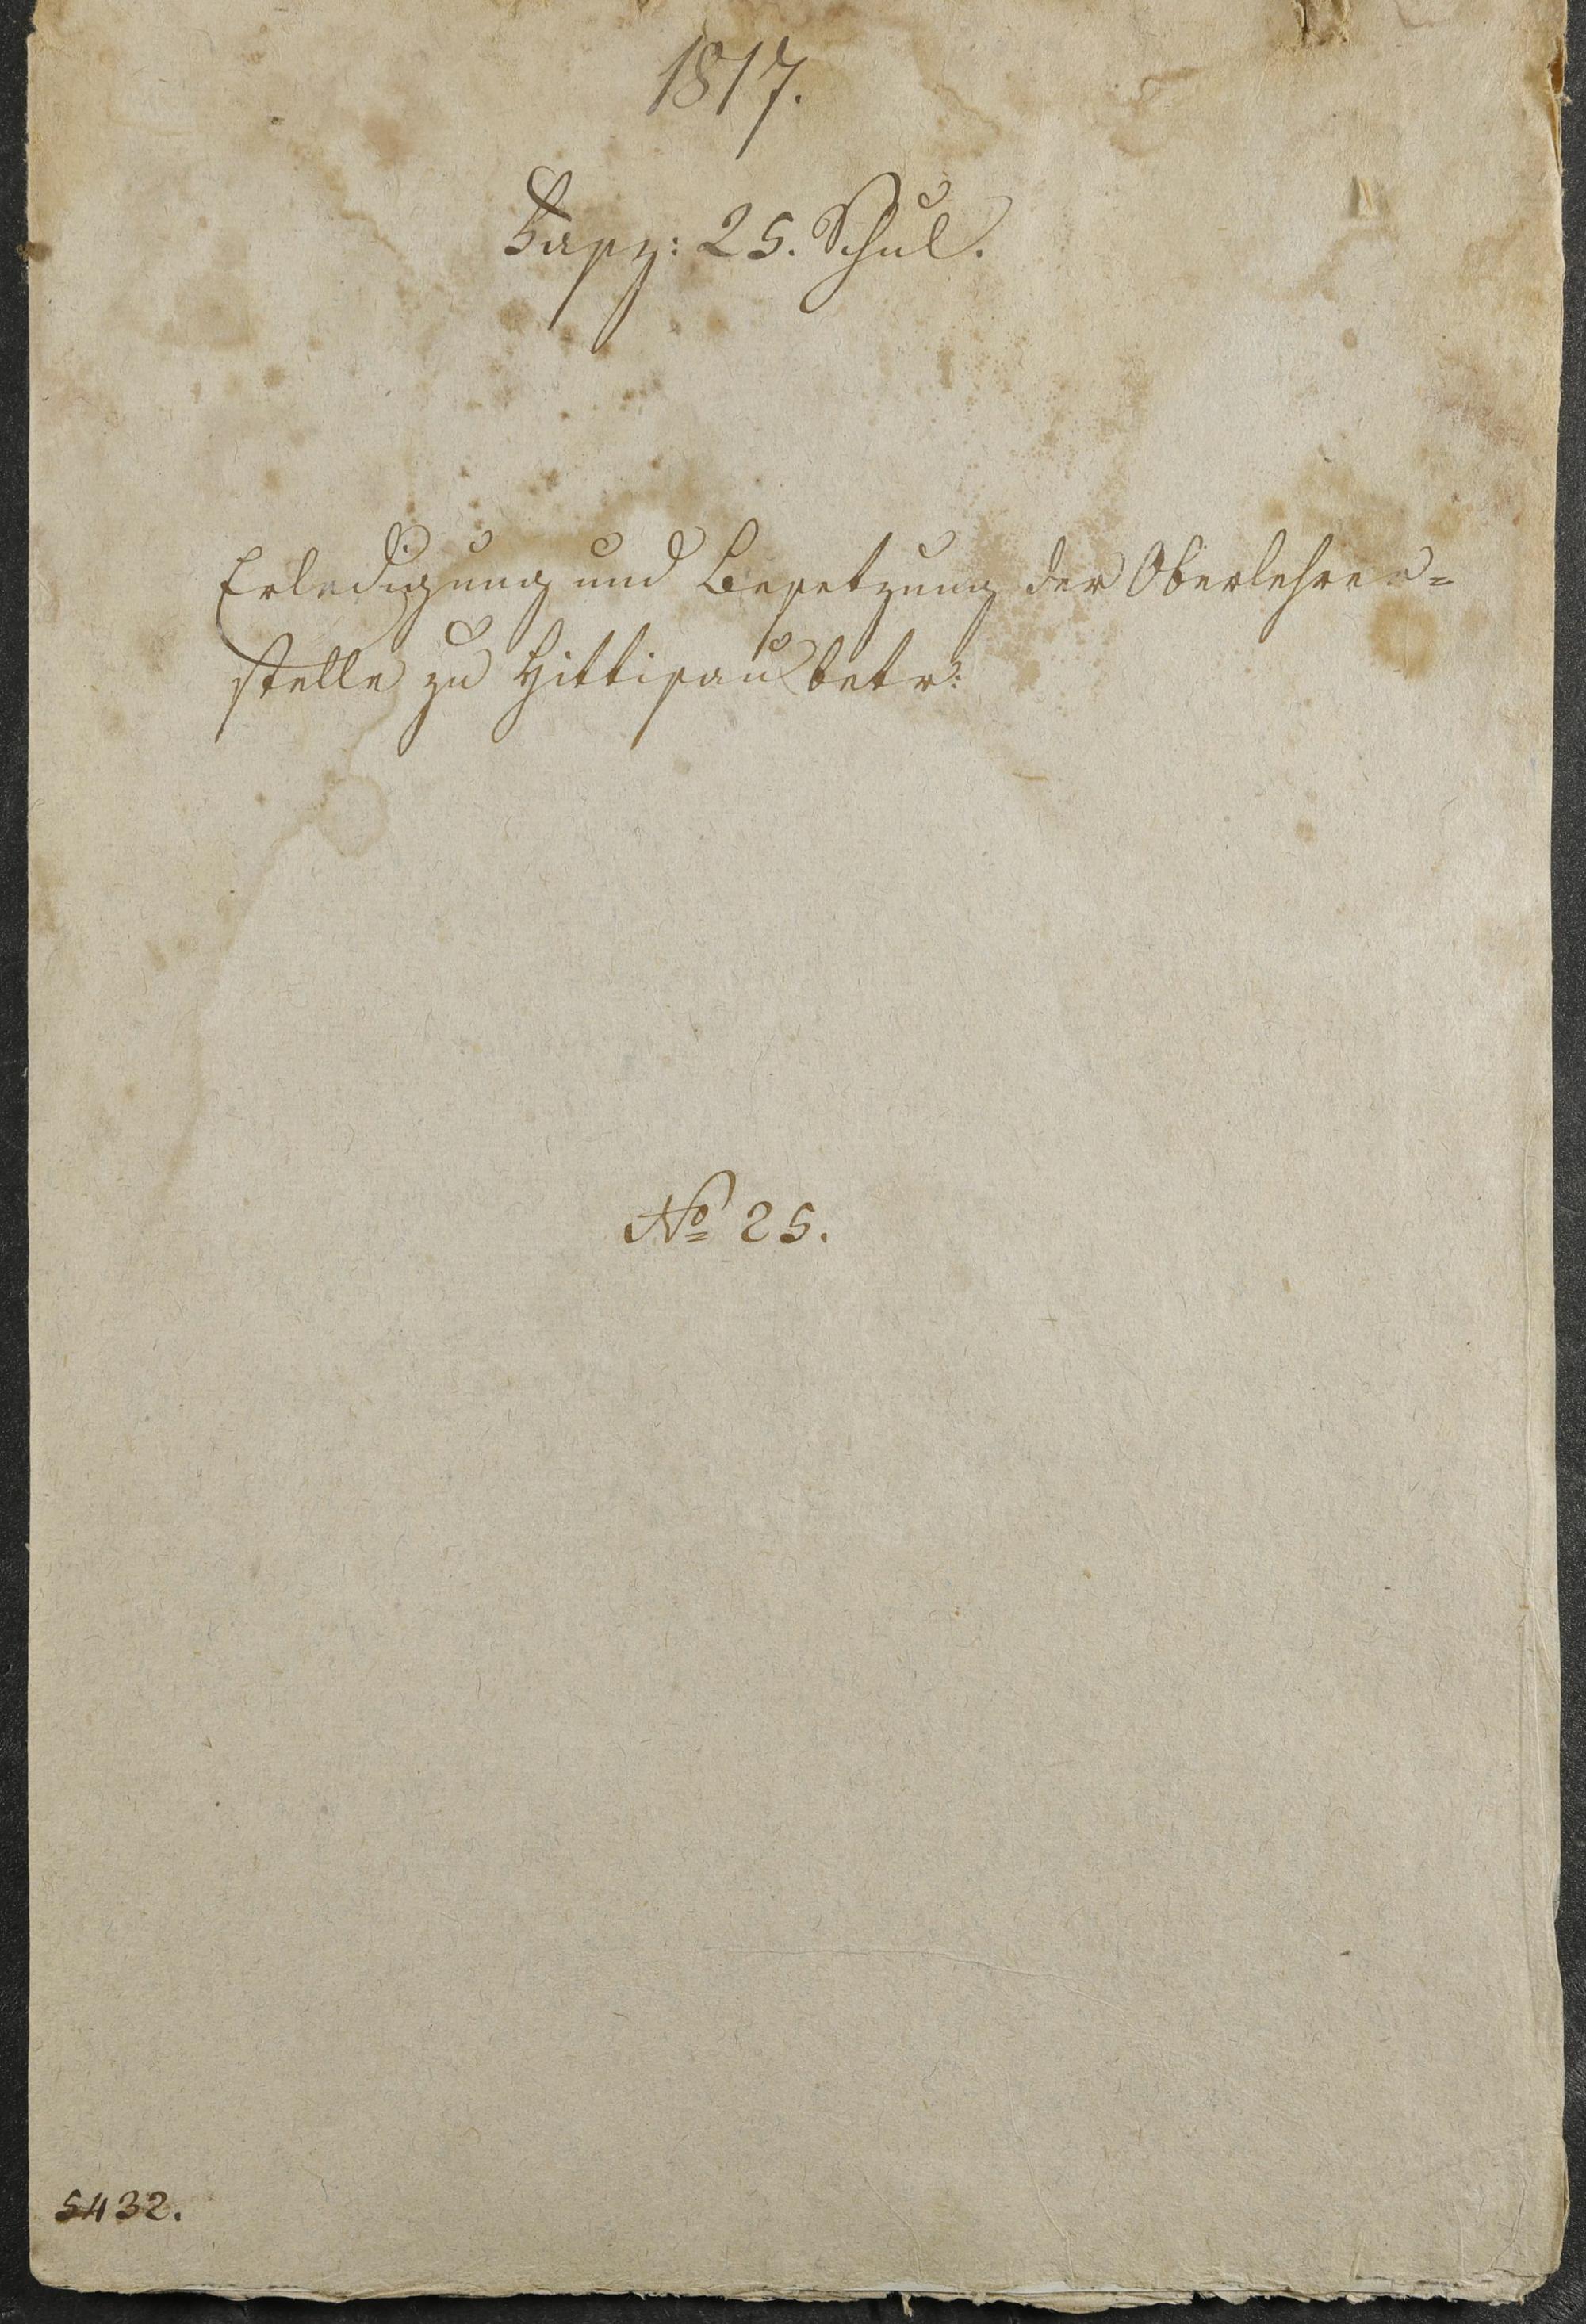 1817.
Fasz: 25. Schul.
Erledigung und Besetzung der Oberlehrer=
stelle zu Hittisau betr:
No 25.
5432.